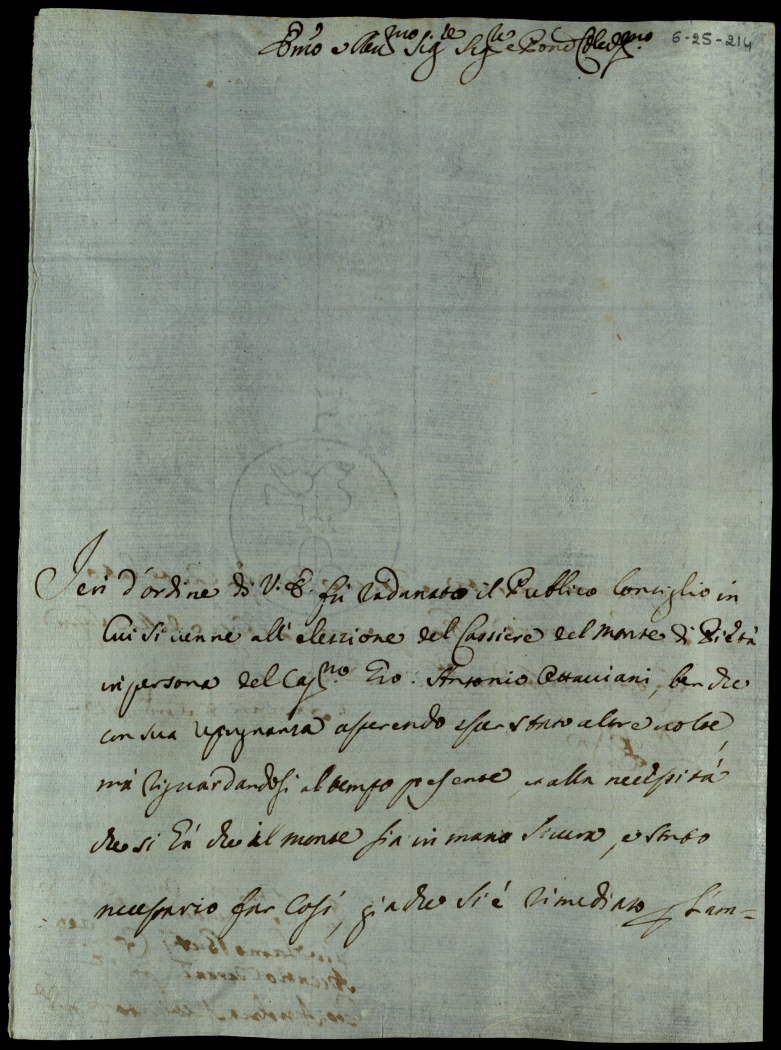 Em͞o e Reu.mo Sig.re Sig.re e Pōne Coled.mo 6-25-214
Jeri d'ordine di V. E. fù radunato il Publico Conseglio in
Cui si uenne all' elezzione del Cassiere del Monte di Pietà
in persona del Cap.no Gio: Antonio Ottauiani, ben che
con sua repugnanza asserendo esser stato altre uolte,
mà riguardandosi al tempo presente, e alla necessità
che si hà che il Monte sia in mano sicura, è stato
necessario far Così, già che si è rimediato p l'am-